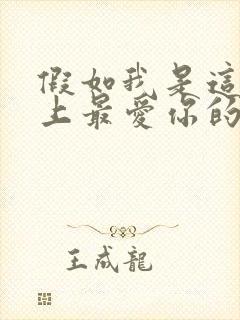 假如我是這
上最愛你的
王成龍